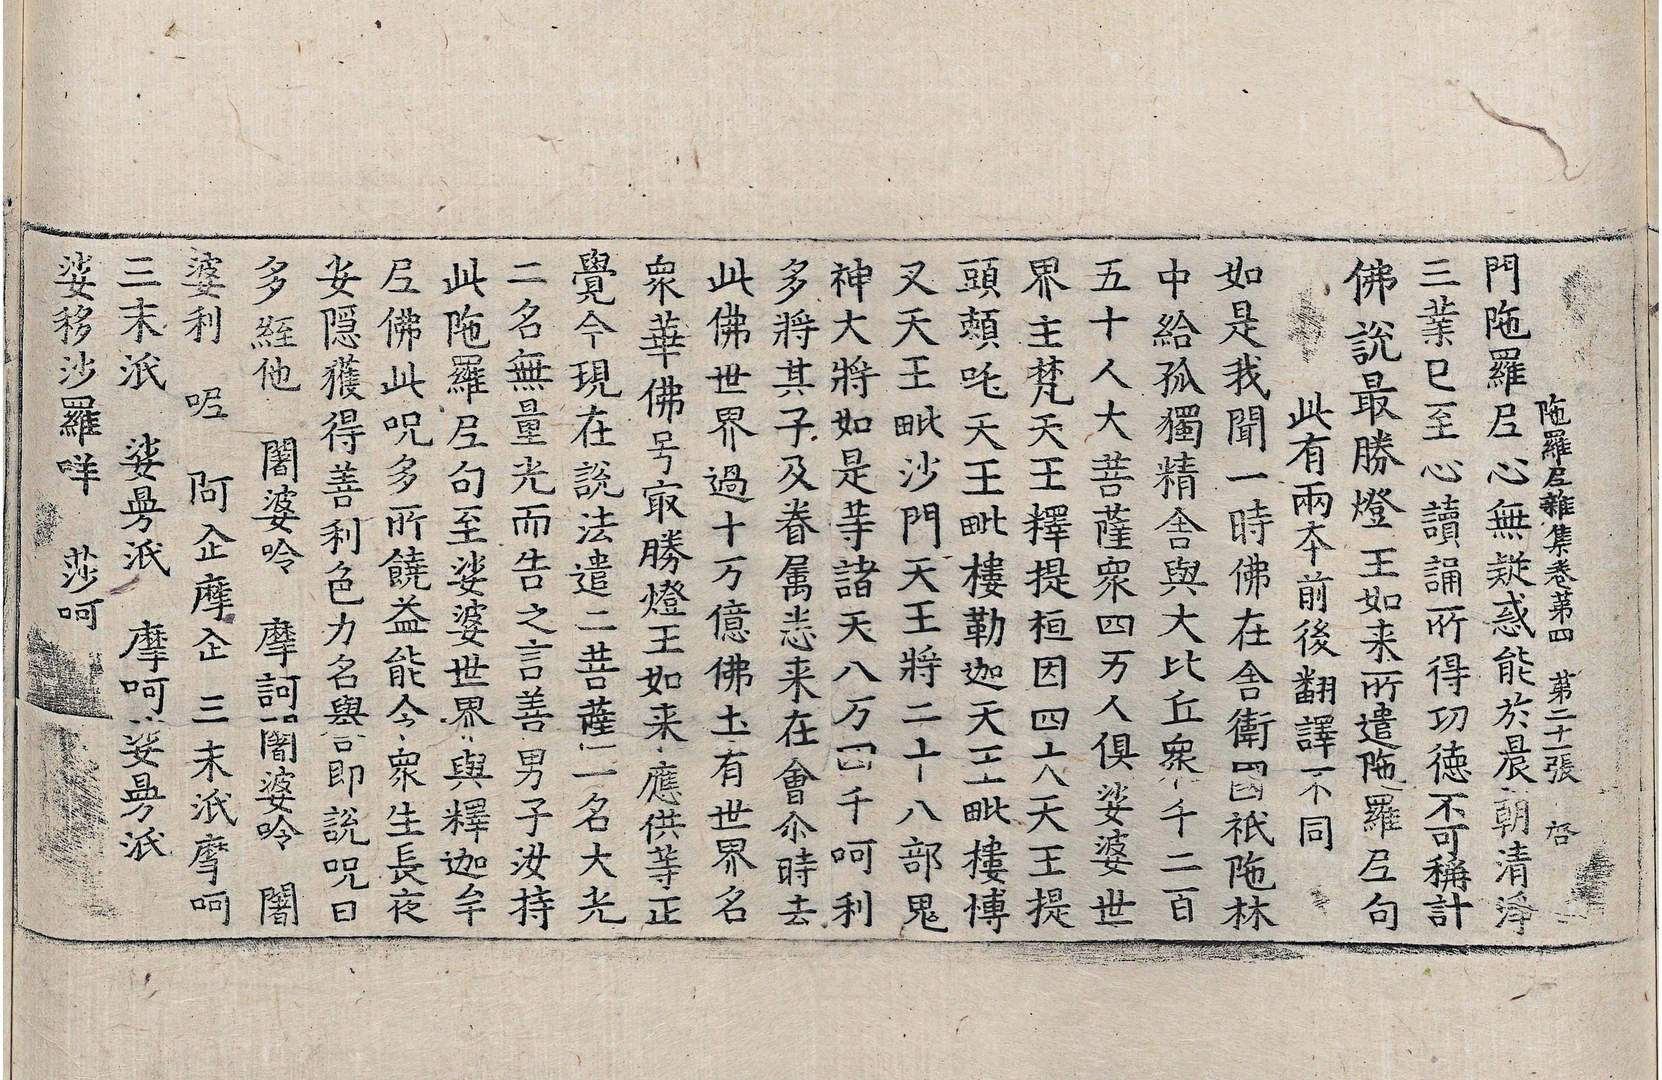 陁羅尼雜集卷苐四 苐二十一張 啓
門陁羅尼心無疑惑能於晨朝清淨
三業已至心讀誦所得功徳不可稱計
佛說最勝燈王如来所遣陁羅尼句
此有兩夲前後翻譯不同
如是我聞一時佛在舎衛國祇陁林
中給孤獨精舎與大比丘衆千二百
五十人大菩薩衆四万人俱娑婆世
界主梵天王釋提桓因四大天王提
頭頼吒天王毗樓勒迦天王毗樓博
叉天王毗沙門天王將二十八部鬼
神大將如是等諸天八万四千呵利
多將其子及眷属恙来在會尒時去
此佛世界過十万億佛土有世界名
衆華佛号㝡勝燈王如来應供等正
覺今現在說法遣二菩薩一名大光
二名無量光而告之言善男子汝持
此陁羅尼句至娑婆世界與釋迦牟
尼佛此呪多所饒益能令衆生長夜
安隠獲得善利色力名譽即說呪曰
多緸他 闍婆呤 摩訶闍婆呤 闍
婆利 呢 阿企摩企 三末派摩呵
三末派 娑㬅派 摩呵娑㬅派
娑移沙羅咩 莎呵